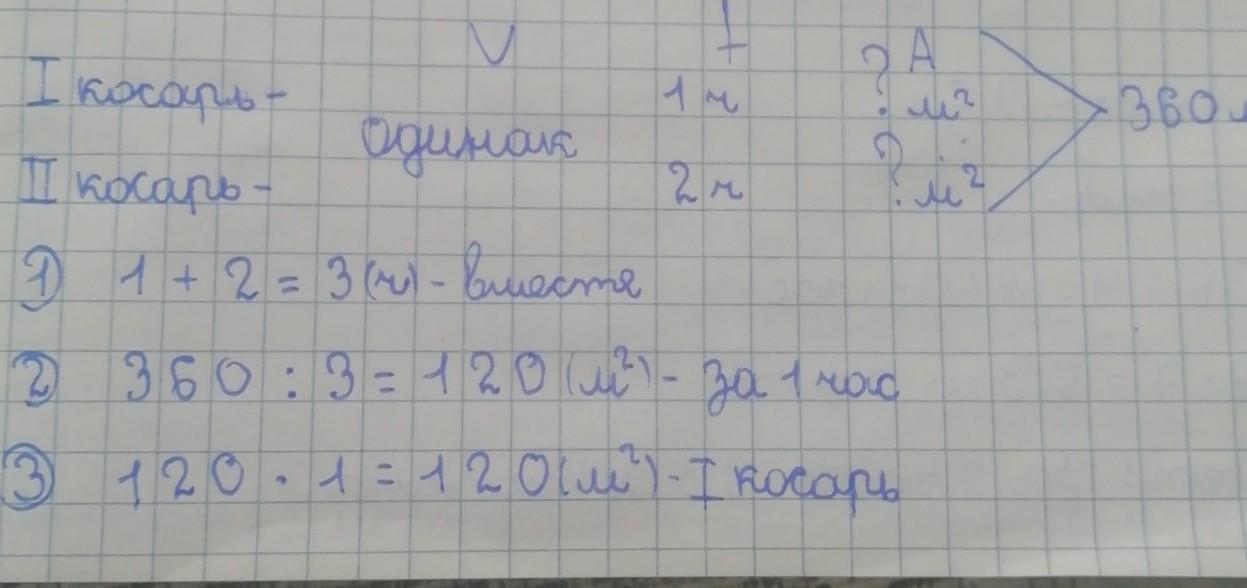 V t A
I косарь - 1 ч ? м²
одинак 360
II косарь - 2 ч ? м²
① 1 + 2 = 3 (ч) - вместе
② 360 : 3 = 120 (м²) - за 1 час
③ 120 · 1 = 120 (м²) - I косарь